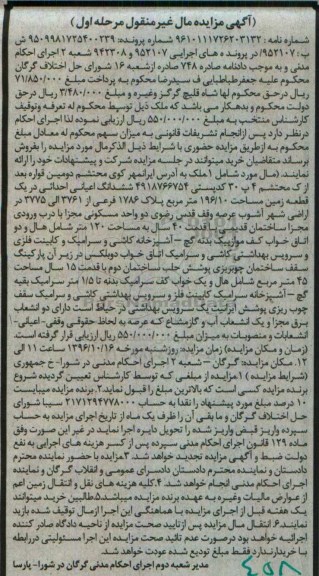 (آگهی مزایده مال غیرمنقول مرحله اول)
شماره نامه: ۹۶۱۰۱۱۱۷۲۶۲۰۳۱۳۲ شماره پرونده: ۹۵۰۹۹۸۱۷۲۵۴۰۰۲۳۹ ش
ب: ۹۵۲۱۰۷/ در پرونده های اجرایی ۹۵۲۱۰۷ و ۹۴۲۳۰۸ شعبه ۲ اجرای احکام
مدنی و به موجب دادنامه صادره ۷۴۸ صادره از شعبه ۱۶ شورای حل اختلاف گرگان
محکوم علیه جعفر طباطبایی ف سیدرضا محکوم به پرداخت مبلغ ۷۱/۸۵۰/۰۰۰
ریال درحق محکوم لها شاه قلیچ گرگز وغیره و مبلغ ۳/۴۸۰/۰۰۰ ریال درحق
دولت محکوم و بدهکار می باشد که ملک ذیل توسط محکوم له تعرفه وتوقیف
کارشناس منتخب به مبلغ ۵۵۰/۰۰۰/۰۰۰ ریال ارزیابی نموده لذا اجرای احکام
درنظر دارد پس ازانجام تشریفات قانونی به میزان سهم محکوم له معادل مبلغ
محکوم به ازطریق مزایده حضوری با شرایط ذیل الذکرمال مورد مزایده را بفروش
برساند متقاضیان خرید میتوانند در جلسه مزایده شرکت و پیشنهادات خود را ارائه
نمایند. (مال مورد) شامل ۱ملک به آدرس ایرانمهر کوی محتشم دومین قواره بعد
از ک محتشم ۴ پ ۳۰ کدپستی ۴۹۱۸۷۶۶۷۵۴ ششدانگ اعیانی احداثی در یک
قطعه زمین مساحت ۱۹۶/۱۰ متر مربع پلاک ۱۷۸۶ فرعی از ۳۷۶۱ الی ۳۷۷۵ در
اراضی شهر آشوب عرصه وقف قدس رضوی دو واحد مسکونی مجزا با درب ورودی
مجزا ساختمان قدیمی با قدمت ۴۰ سال به مساحت ۱۲۰ متر شامل هال و دو
اتاق خواب کف موزاییک بدنه گچ – آشپزخانه کاشی و سرامیک و کابینت فلزی
و سرویس بهداشتی کاشی و سرامیک اتاق خواب دوبلکس در زیر آن پارکینگ
سقف ساختمان چوبریزی پوشش حلب ساختمان دوم با قدمت ۱۵ سال مساحت
۴۵ متر مربع شامل هال و یک خواب کف سرامیک بدنه تا ۱/۵ متر سرامیک بقیه
گچ – آشپزخانه سرامیک کابینت فلز و سرویس بهداشتی کاشی و سرامیک سقف
چوب ریزی پوشش ایرانیت یک سرویس بهداشتی در حیاط است دارای دو انشعاب
برق مجزا و یک انشعاب آب و گاز مشاع که عرصه به لحاظ حقوقی وقفی - اعیانی -
انشعابات و منصوبات به میزان مبلغ ۵۵۰/۰۰۰/۰۰۰ ریال ارزیابی قرار گرفته است.
(زمان و مکان مزایده) زمان مزایده: روزشنبه مورخه ۱۳۹۶/۱۰/۱۶ ساعت ۱۱ الی
۱۲. مکان مزایده: گرگان – شعبه ۲ اجرای احکام مدنی در شورا-خ جمهوری
(شرایط مزایده) ۱مزایده از مبلغی که توسط کارشناس تعیین گردیده شروع
برنده مزایده کسی است که بالاترین مبلغ را قبول نماید.۲.برنده مزایده میبایست
۱۰ درصد مبلغ مورد پیشنهاد را نقدا به حساب ۲۱۷۱۲۹۴۷۷۸۰۰۰ سیبا شورای
حل اختلاف گرگان و مابقی آن را ظرف یک ماه از تاریخ اجرای مزایده به حساب
سپرده واریز قبض واریز شده را تحویل دایره اجرا نماید در غیر این صورت وفق
ماده ۱۲۹ قانون اجرای احکام مدنی سپرده پس از کسر هزینه های اجرایی به نفع
دولت ضبط و آگهی مزایده تجدید خواهد شد. ۳مزایده با حضور نماینده محترم
دادستان و نماینده محترم دادستان دادسرای عمومی و انقلاب گرگان و نماینده
اجرای احکام مدنی انجام خواهد شد. ۴.کلیه هزینه های نقل و انتقال زمین اعم
از عوارض مالیات وغیره به عهده برنده مزایده میباشد.۵طالبین خرید میتوانند
یک هفته قبل از اجرای مزایده با هماهنگی این اجرا ازمال توقیف شده بازید
نمایند.۶.انتقال مال مزایده پس ازتایید صحت مزایده از ناحیه دادگاه صادر کننده
اجرائیه خواهد بود درصورت عدم تائید صحت مزایده این اجرا مسئولیتی دررابطه
با خریدارندارد فقط مبلغ تودیع شده عودت خواهد شد.
مدیر شعبه دوم اجرای احکام مدنی گرگان در شورا- پارسا